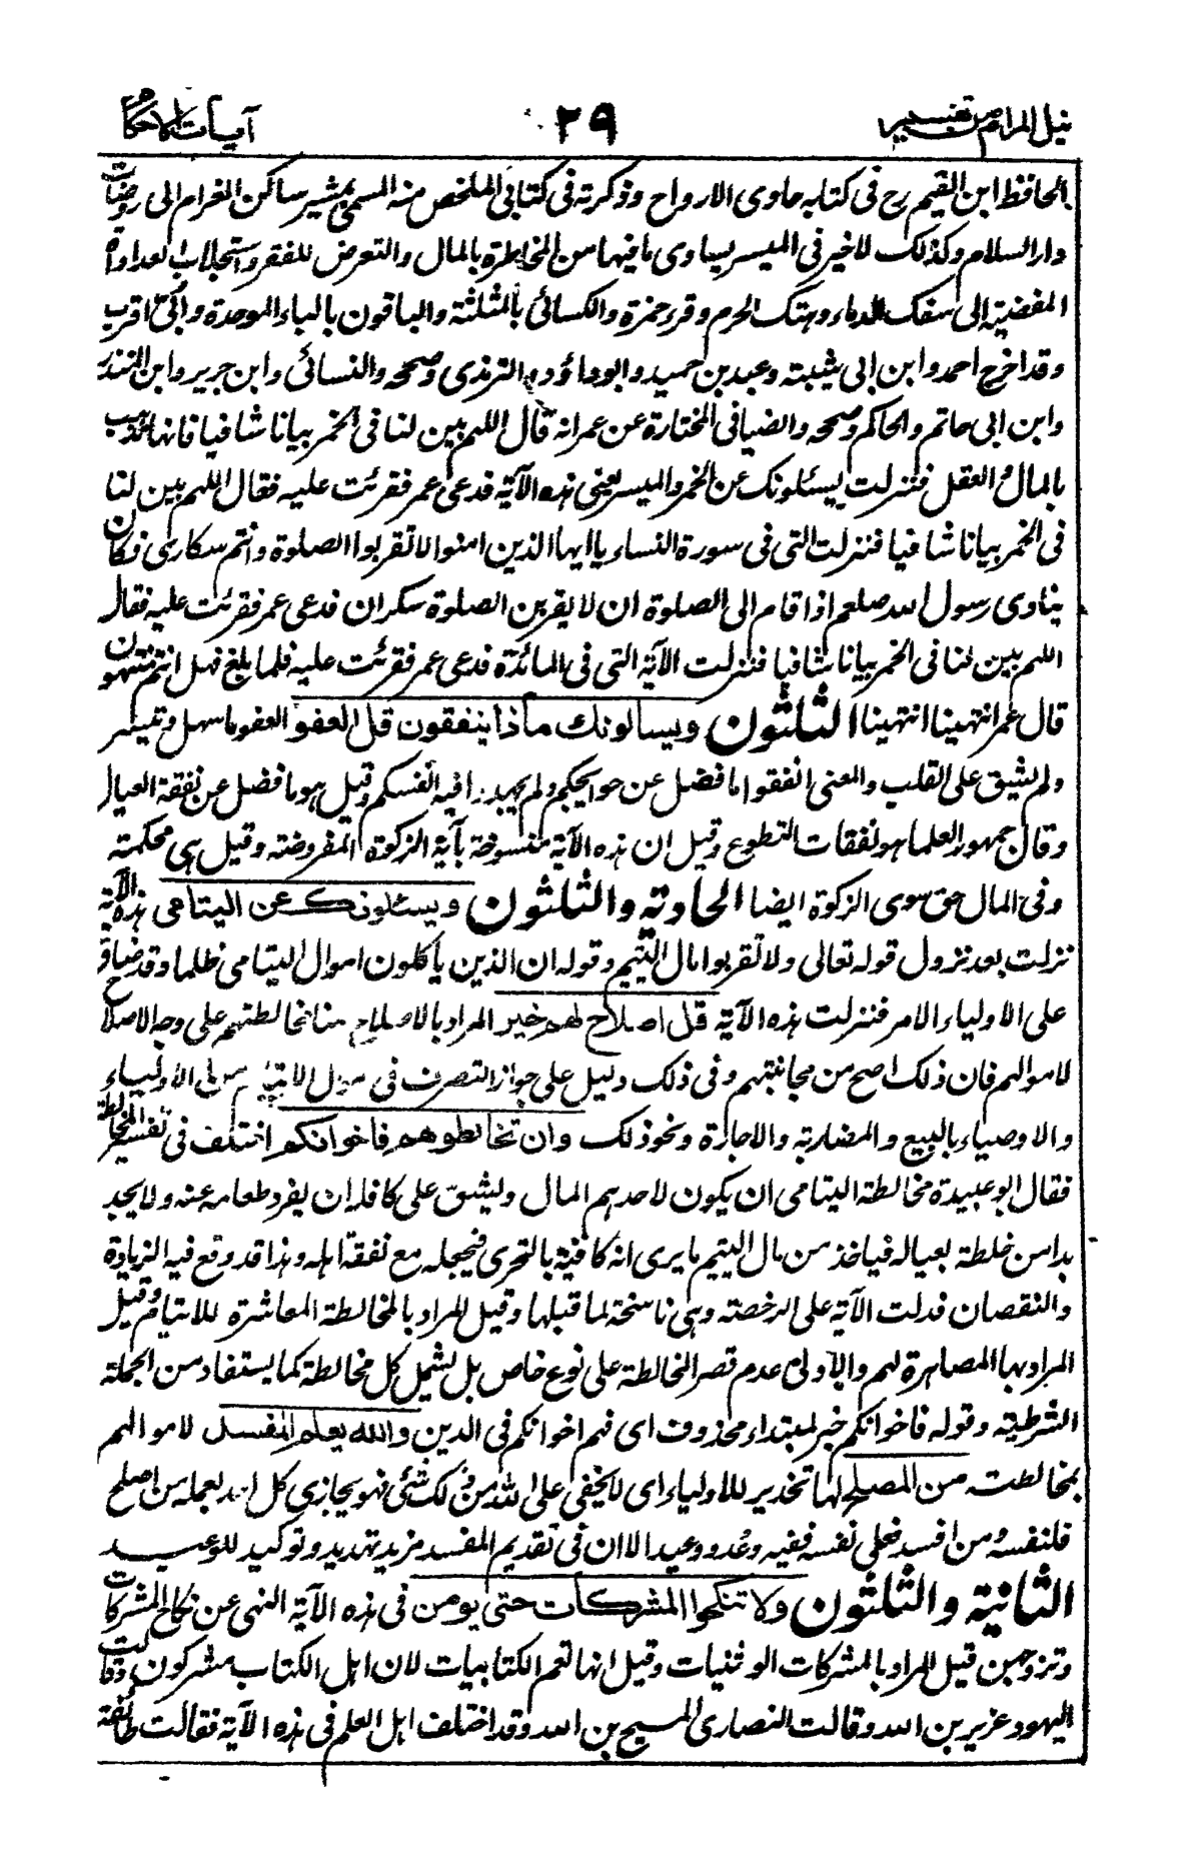 نيل المرام من تفسير ٢٩ آيات الاحكام
الحافظ ابن القيم رح فى كتابه حاوى الارواح وذكرته فى كتابى الملخص منه المسمى بمثير ساكن الغرام الى روضات
دار السلام وكذلك لاخير فى الميسر يساوى ما فيها من المخاطرة بالمال والتعرض للفقر واستجلاب العداوة
المفضية الى سفك الدماء وهتك الحرم وقرء حمزة والكسائى بالمثلثة والباقون بالباء الموحدة وابى اقرب
وقد اخرج احمد وابن ابى شيبة وعبد بن حميد وابو داؤد والترمذى وصححه والنسائى وابن جرير وابن المنذر
وابن ابى حاتم والحاكم وصححه والضيا فى المختارة عن عمر انه قال اللهم بين لنا فى الخمر بيانا شافيا فانها تذهب
بالمال والعقل فنزلت يسئلونك عن الخمر والميسر يعنى هذه الآية فدعى عمر فقرئت عليه فقال اللهم بين لنا
فى الخمر بيانا شافيا فنزلت التى فى سورة النساء يا ايها الذين امنوا لا تقربوا الصلوة وانتم سكارى فكان
ينادى رسول الله صلعم اذا قام الى الصلوة ان لا يقربن الصلوة سكران فدعى عمر فقرئت عليه فقال
اللهم بين لنا فى الخمر بيانا شافيا فنزلت الآية التى فى المائدة فدعى عمر فقرئت عليه فلما بلغ فهل انتم منتهون
قال عمر انتهينا انتهينا الثلثون ويسألونك ماذا ينفقون قل العفو العفو ما سهل وتيسر
ولم يشق على القلب والمعنى انفقوا ما فضل عن حوايجكم ولم تجهدوا فيه انفسكم وقيل هو ما فضل عن نفقة العيال
وقال جمهور العلما هو نفقات التطوع وقيل ان هذه الآية منسوخة بآية الزكوة المفروضة وقيل هى محكمة
وفى المال حق سوى الزكوة ايضا الحادية والثلثون ويسئلونك عن اليتامى هذه الآية
نزلت بعد نزول قوله تعالى ولا تقربوا مال اليتيم وقوله ان الذين يأكلون اموال اليتامى ظلما وقد ضاق
على الاولياء الامر فنزلت هذه الآية قل اصلاح لهم خير المراد بالاصلاح هنا مخالطتهم على وجه الاصلاح
لاموالهم فان ذلك اصح من مجانبتهم وفى ذلك دليل على جواز التصرف فى اموال الايتام من الاولياء
والاوصياء بالبيع والمضاربة والاجارة ونحو ذلك وان تخالطوهم فاخوانكم اختلف فى تفسير المخالطة
فقال ابو عبيدة مخالطة اليتامى ان يكون لاحدهم المال ويشق على كافله ان يفرد طعامه عنه ولا يجد
بدا من خلطة بعياله فياخذ من مال اليتيم ما يرى انه كافيه بالتحرى فيجعله مع نفقة اهله وهذا قد وقع فيه الزيادة
والنقصان فدلت الآية على الرخصة وهى ناسخة لما قبلها وقيل المراد بالمخالطة المعاشرة للايتام وقيل
المراد بها المصاهرة لهم والاولى عدم قصر المخالطة على نوع خاص بل يشمل كل مخالطة كما يستفاد من الجملة
الشرطية وقوله فاخوانكم خبر لمبتداء محذوف اى فهم اخوانكم فى الدين والله يعلم المفسد لاموالهم
بمخالطته من المصلح لها تحذير للاولياء اى لا يخفى على الله من ذلك شئ فهو يجازى كل احد بعمله من اصلح
فلنفسه ومن افسد فعلى نفسه ففيه وعد ووعيد الا ان فى تقديم المفسد مزيد تهديد وتوكيد للوعيد
الثانية والثلثون ولا تنكحوا المشركات حتى يومن فى هذه الآية النهى عن نكاح المشركات
وتزوجهن قيل المراد بالمشركات الوثنيات وقيل انها تعم الكتابيات لان اهل الكتاب مشركون وقالت
اليهود عزير بن الله وقالت النصارى المسيح بن الله وقد اختلف اهل العلم فى هذه الآية فقالت طائفة